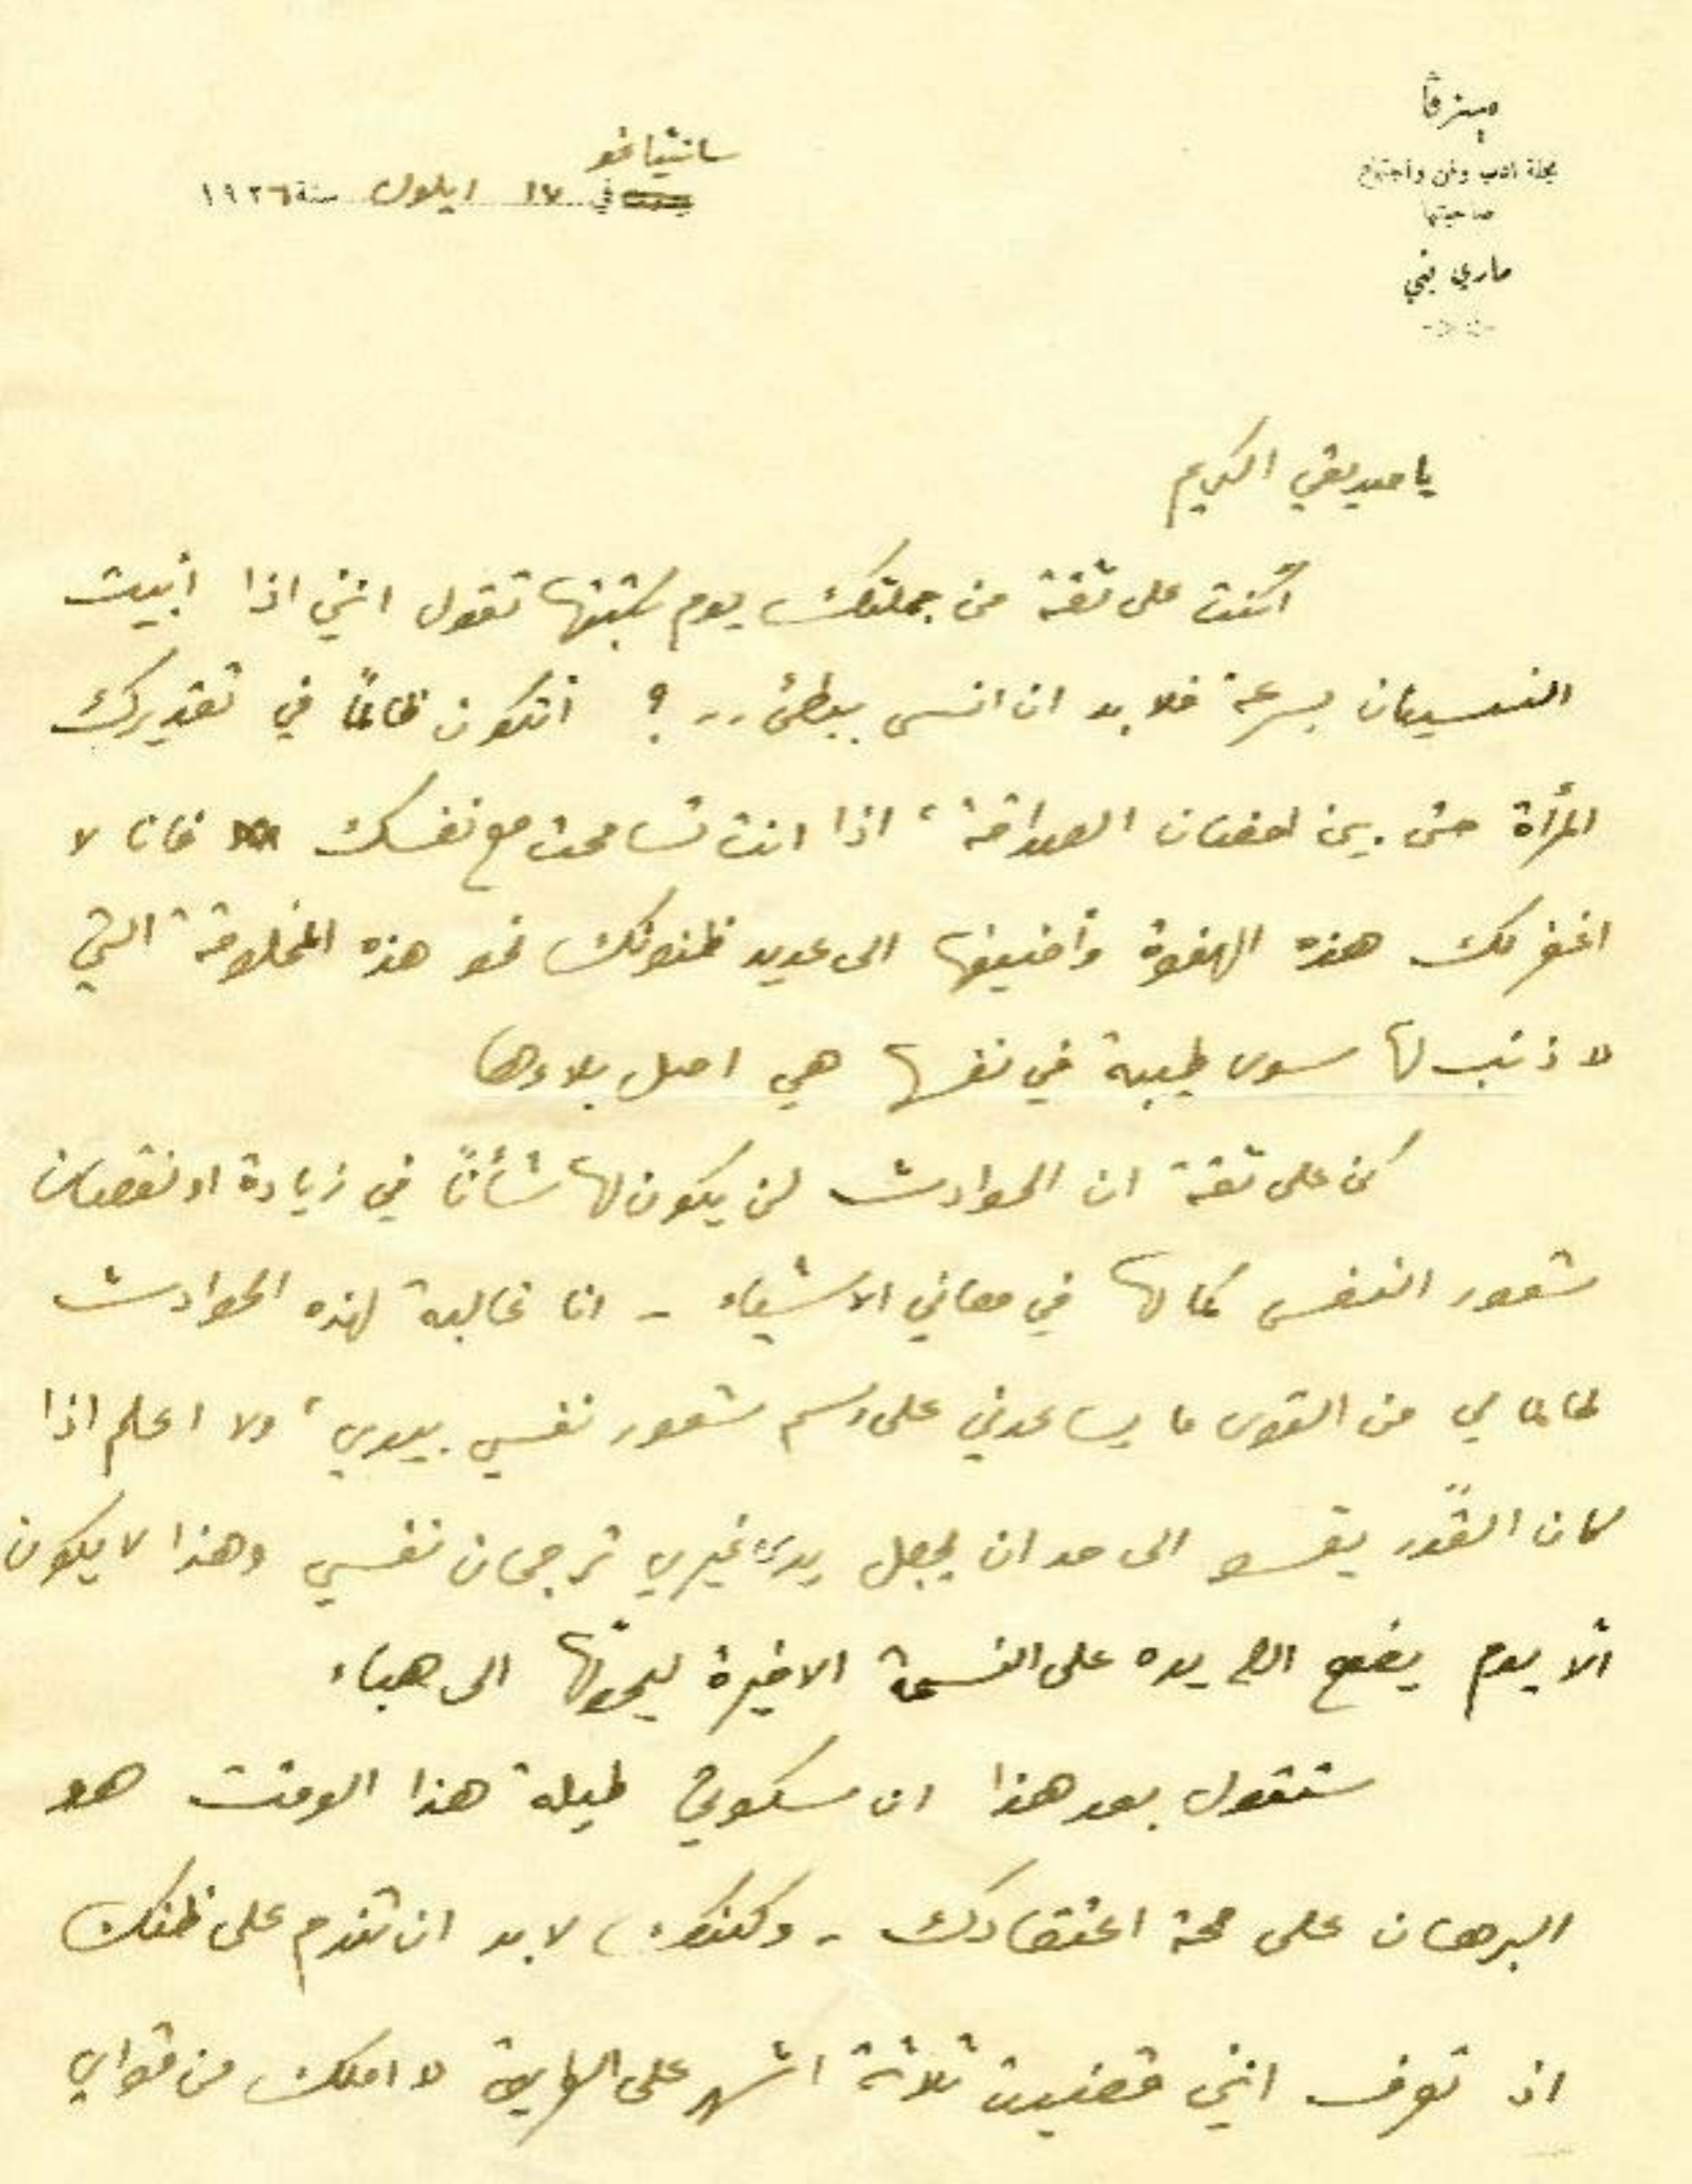 مينرڤا
مجلة ادب وفن واجتماع
صاحبتها
ماري يني
سانتياغو
في ١٧ ايلول سنة ١٩٢٦
يا صديقي الكريم
أكنت على ثقة من جملتك يوم كتبتها تقول انني اذا أبيت
النسيان بسرعة فلا بد ان انسى ببطئ .. ؟ أتكون ظالماً في تقديرك
المرأة حتى بين احضان الصداقة، اذا انت تسامحت مع نفسك فانا لا
اغفر لك هذه الهفوة وأضيفها الى عديد ظنونك نحو هذه المخلوقة التي
لا ذنب لها سوى طيبة في نفسها هي اصل بلاءها
كن على ثقة ان الحوادث لن يكون لها شأناً في زيادة او نقصان
شعور النفس كما لها في معاني الاشياء - انا غالبة لهذه الحوادث
طالما لي من القوى ما يساعدني على رسم شعور نفسي بيدي، ولا اعلم اذا
كان القدر يقسو الى حد ان يجعل يد غيري ترجمان نفسي وهذا لا يكون
الا يوم يضع الله يده على النسمة الاخيرة ليحولها الى هباء
ستقول بعد هذا ان سكوتي طيلة هذا الوقت هو
البرهان على صحة اعتقادك - ولكنك لا بد ان تندم على ظنك
اذ تعرف انني قضيت ثلاثة اشهر على الفراش لا املك من قواي